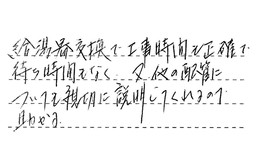 給湯器交換で工事時間も正確で
待ち時間もなく 又他の配管に
ついても親切に説明してくれるので
助かる